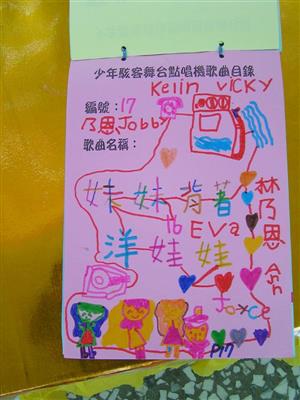 少年駭客舞台點唱機歌曲目錄
Keiin VICKY
編號：17
乃恩 Jobby
歌曲名稱：
妹妹背著
16 EVa
洋娃娃
林乃恩
Ann
Joyce